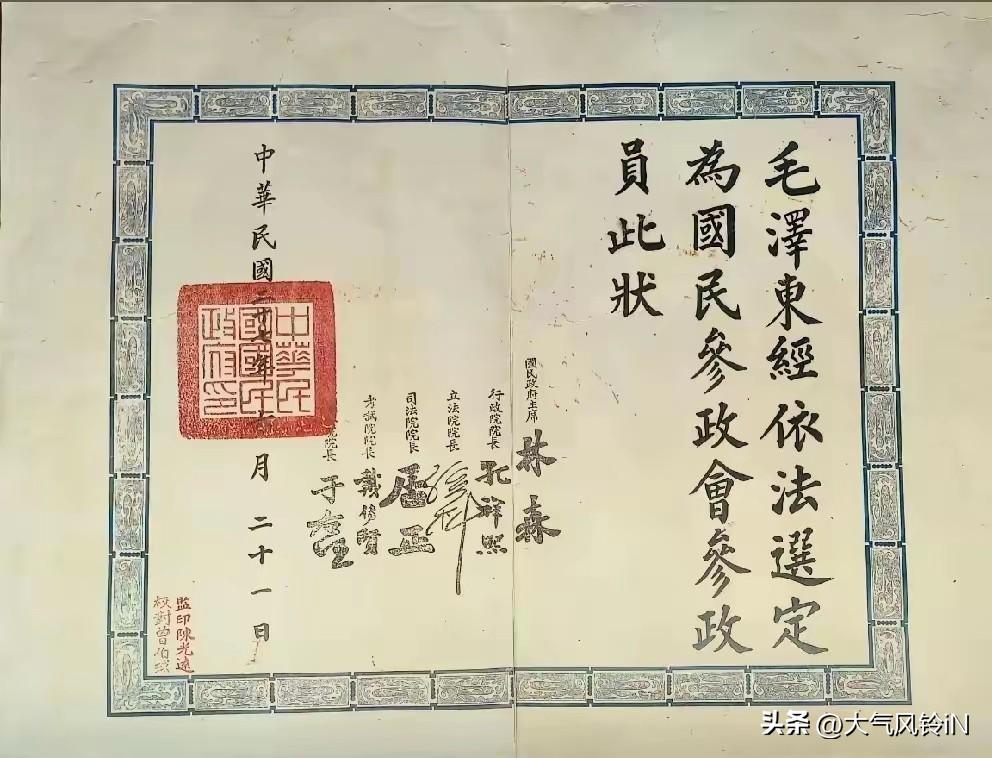 毛澤東經依法選定
為國民參政會參政
員此狀
國民政府主席 林森
行政院院長 孔祥熙
立法院院長 孫科
司法院院長 居正
考試院院長 戴傳賢
院院長 于右任
中華民國二十七年六月二十一日
中華民
國國民
政府印
監印陳光遠
校對曾伯
头条 @大气风铃iN